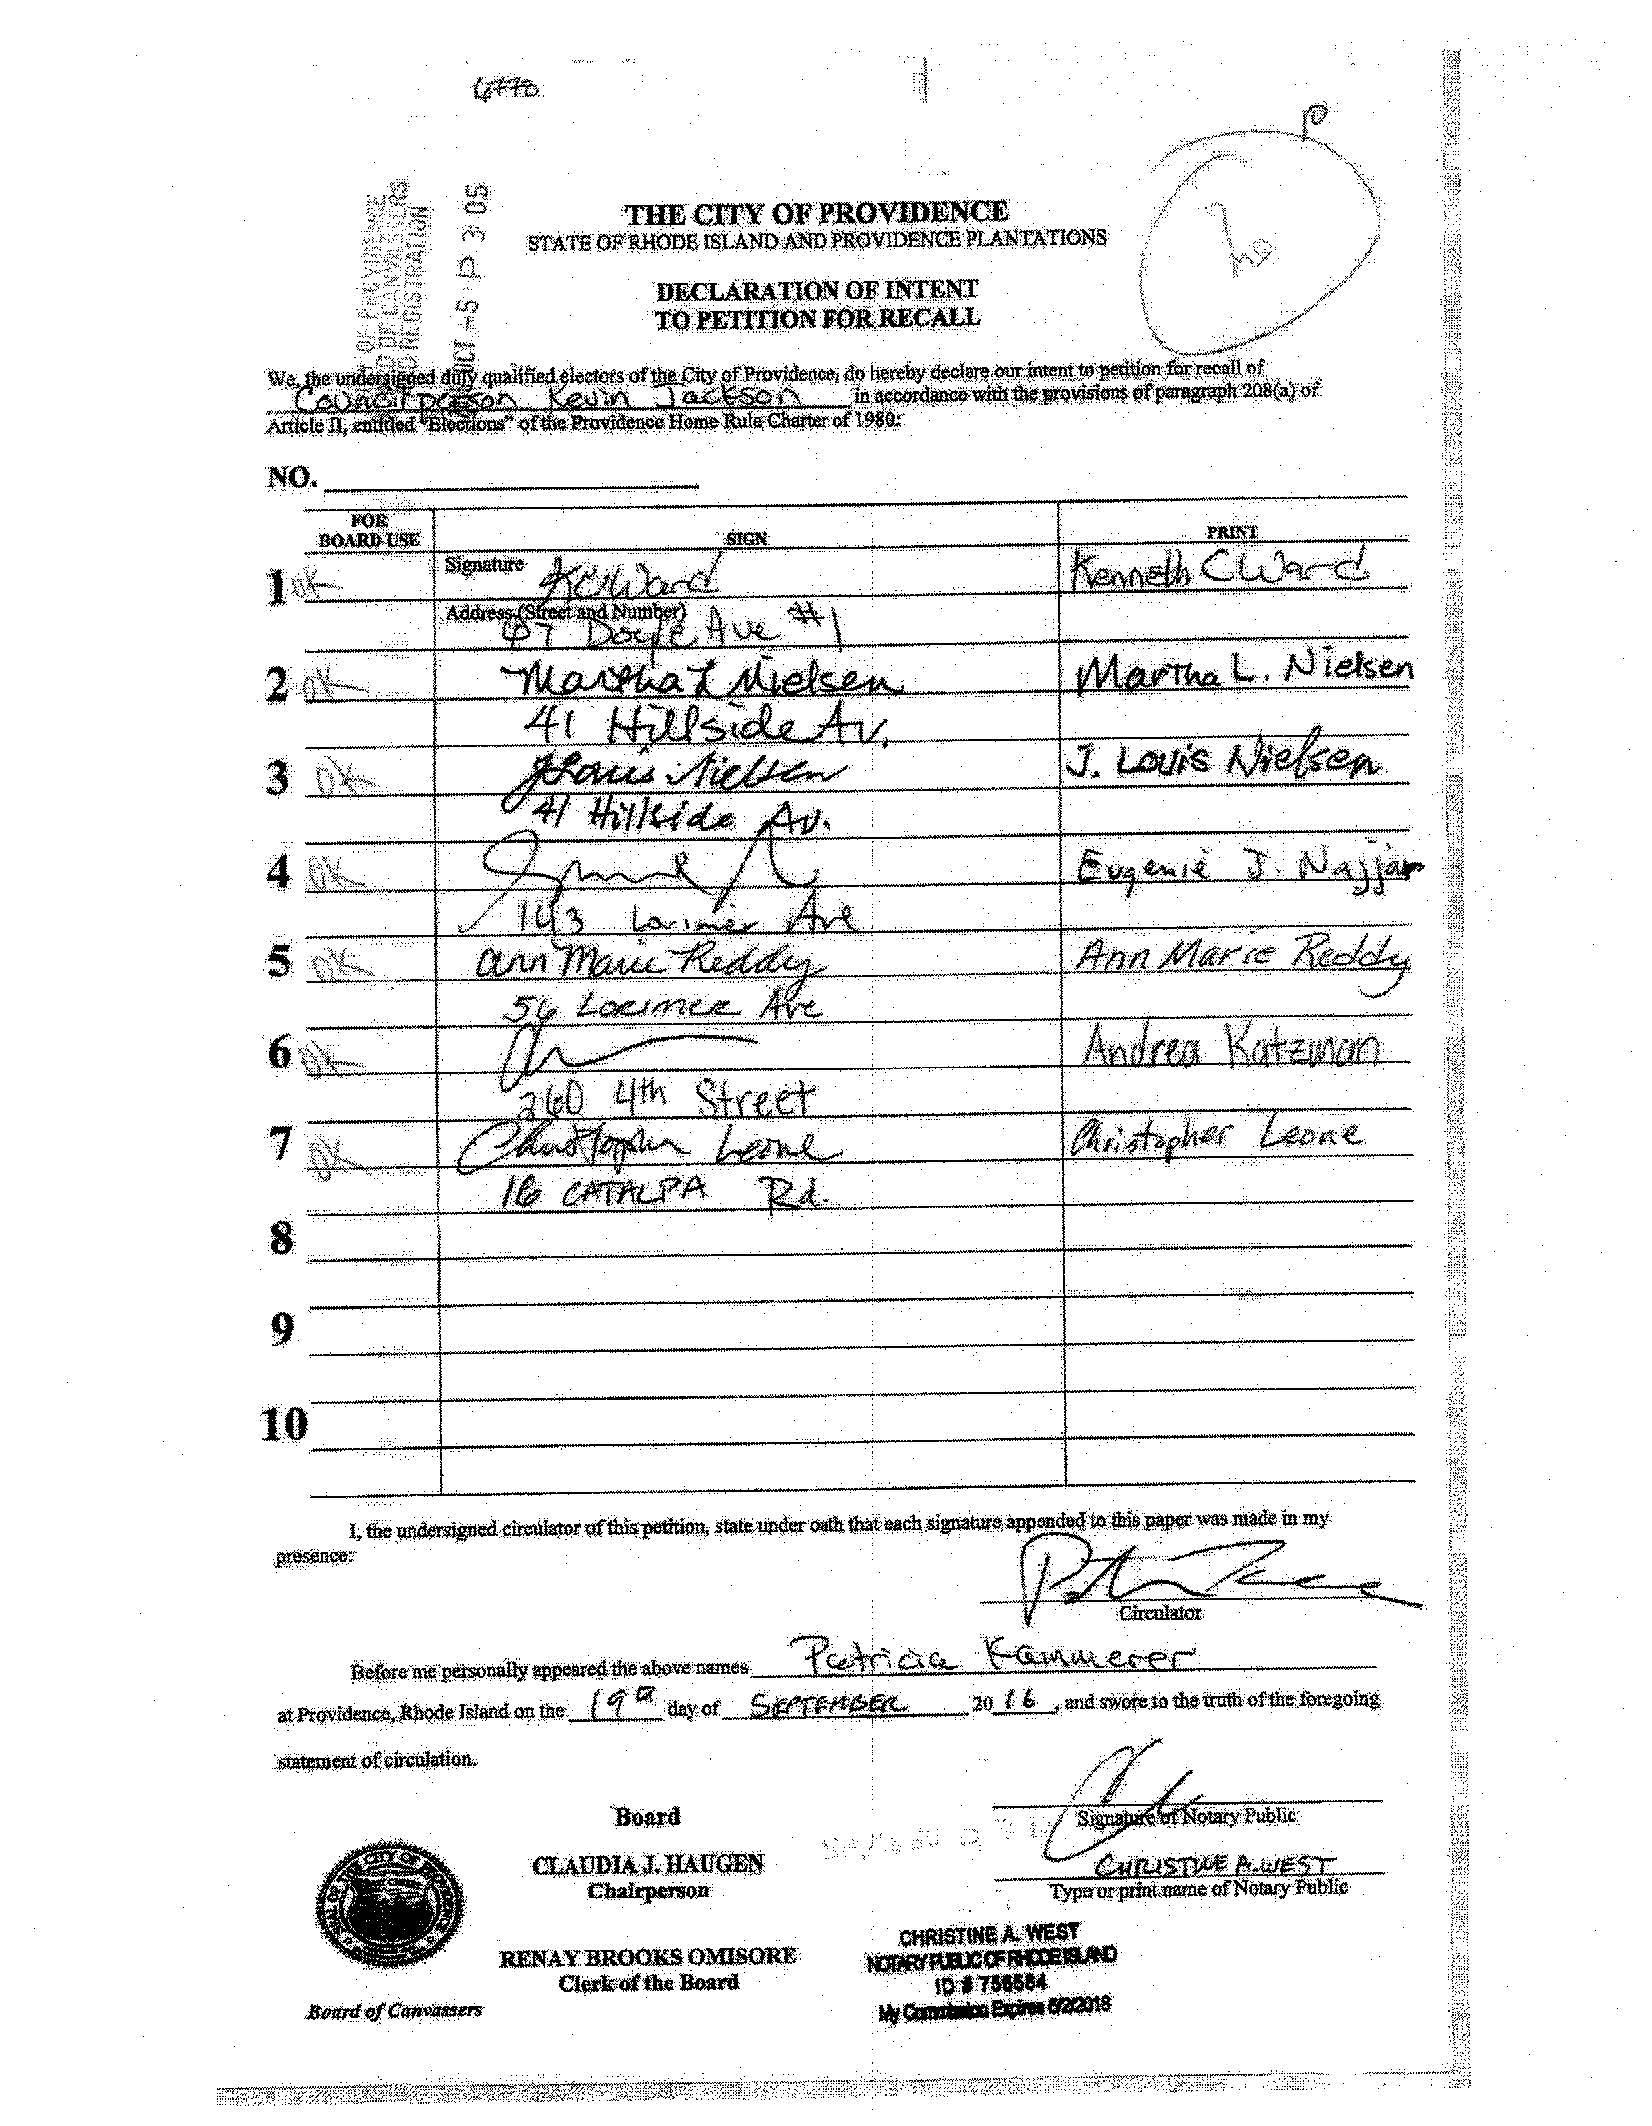 6770
P
THE CITY OF PROVIDENCE
STATE OF RHODE ISLAND AND PROVIDENCE PLANTATIONS
DECLARATION OF INTENT
TO PETITION FOR RECALL
REGISTRATION
-5 P 3:05
We, the undersigned duly qualified electors of the City of Providence, do hereby declare our intent to petition for recall of
Councilperson Kevin Jackson in accordance with the provisions of paragraph 208(a) of
Article II, entitled "Elections" of the Providence Home Rule Charter of 1980:
NO.
FOR
BOARD USE SIGN PRINT
1 OK Signature KCWard Kenneth C Ward
Address (Street and Number)
67 Doyle Ave #1
2 OK Martha L Nielsen Martha L. Nielsen
41 Hillside Av.
3 OK J Louis Nielsen J. Louis Nielsen
41 Hillside Av.
4 OK Eugenie J. Najjar
143 Lorimer Ave
5 OK Ann Marie Reddy Ann Marie Reddy
56 Lorimer Ave
6 OK Andrea Katzman
260 4th Street
7 OK Christopher Leone Christopher Leone
16 CATALPA Rd.
8
9
10
I, the undersigned circulator of this petition, state under oath that each signature appended to this paper was made in my
presence:
Circulator
Before me personally appeared the above names Patricia Kammerer
at Providence, Rhode Island on the 19th day of SEPTEMBER 2016, and swore to the truth of the foregoing
statement of circulation.
Board
Signature of Notary Public
CLAUDIA J. HAUGEN
Chairperson
CHRISTINE A. WEST
Type or print name of Notary Public
RENAY BROOKS OMISORE
Clerk of the Board
CHRISTINE A. WEST
NOTARY PUBLIC OF RHODE ISLAND
ID # 756584
My Commission Expires 6/2/2018
Board of Canvassers